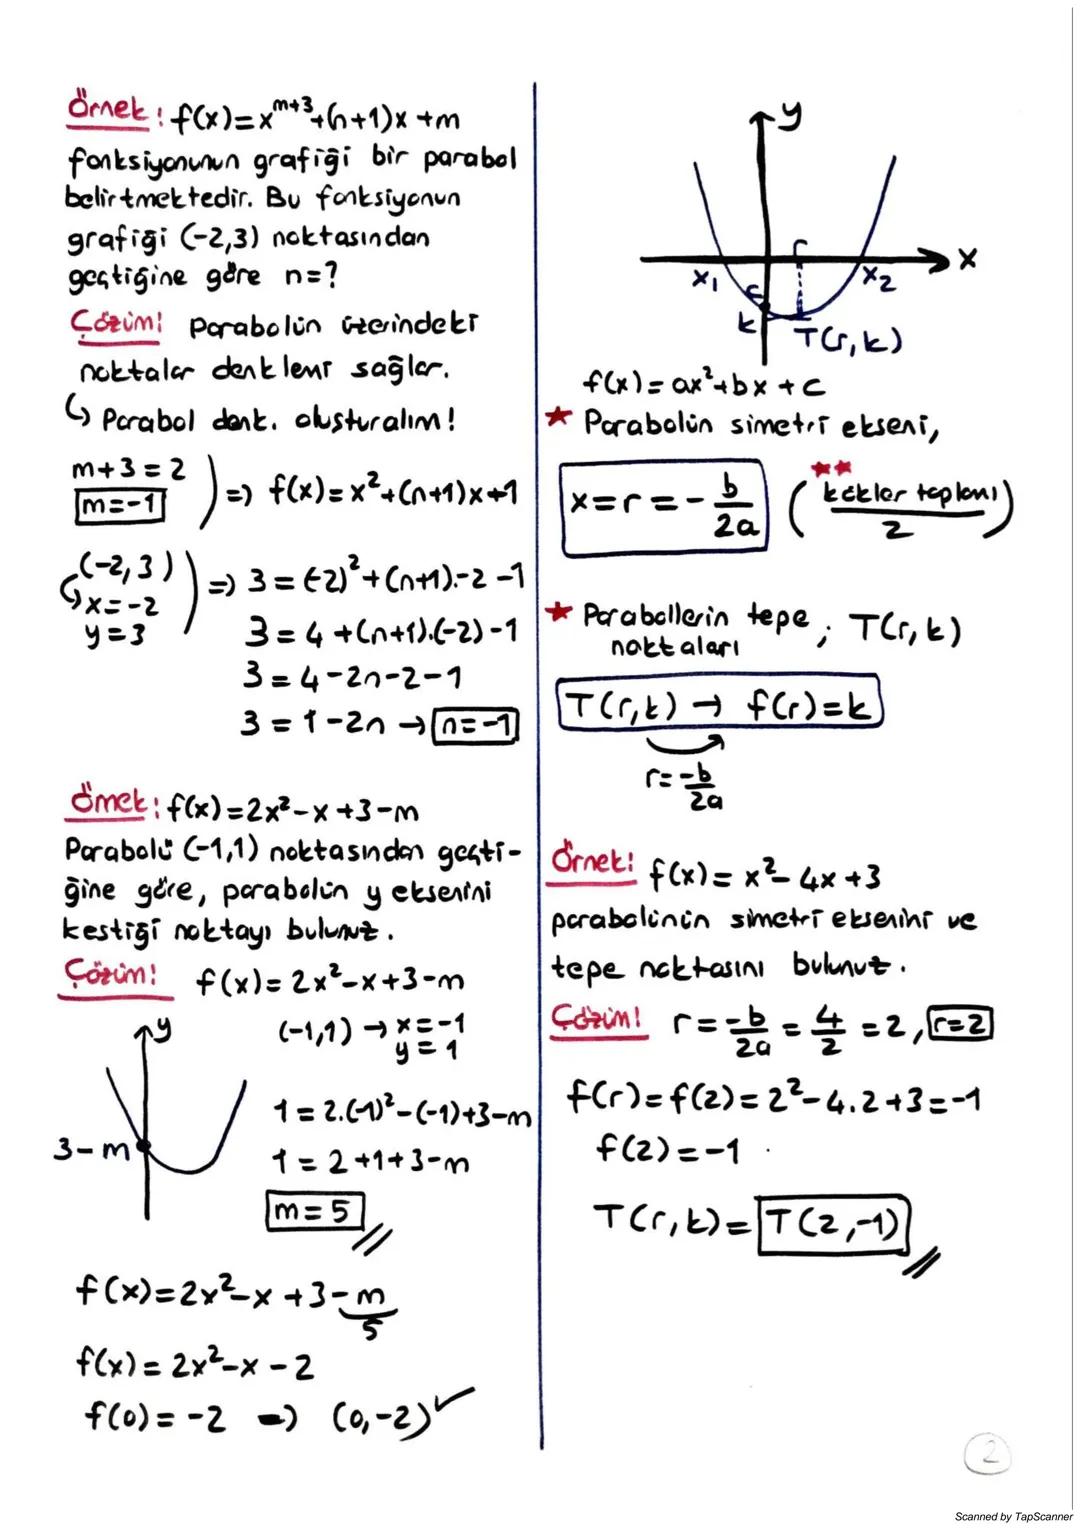 Örnek: f(x)=x^(m+3)+(n+1)x+m
fonksiyonunun grafiği bir parabol
belirtmektedir. Bu fonksiyonun
grafiği (-2,3) noktasından
geçtiğine göre n=?
Çözüm! Parabolün üzerindeki
noktalar denklemi sağlar.
↳ Parabol denk. oluşturalım!
m+3=2
m=-1
=> f(x)=x²+(n+1)x+1
(-2,3)
↳x=-2
y=3
=> 3=(-2)²+(n+1).-2-1
3=4+(n+1).(-2)-1
3=4-2n-2-1
3=1-2n → n=-1
Örnek: f(x)=2x²-x+3-m
Parabolü (-1,1) noktasından geçti-
ğine göre, parabolün y eksenini
kestiği noktayı bulunuz.
Çözüm! f(x)=2x²-x+3-m
y
3-m
(-1,1) → x=-1
y=1
1=2.(-1)²-(-1)+3-m
1=2+1+3-m
m=5
f(x)=2x²-x+3-m
5
f(x)=2x²-x-2
f(0)=-2 => (0,-2)✓
y
x
r
x₁
x₂
c
k
T(r,k)
f(x)=ax²+bx+c
★ Parabolün simetri ekseni,
x=r=-b/2a (kökler toplamı/2)
★★
★ Parabollerin tepe ; T(r,k)
noktaları
T(r,k) → f(r)=k
r=-b/2a
Örnek! f(x)=x²-4x+3
parabolünün simetri eksenini ve
tepe noktasını bulunuz.
Çözüm! r=-b/2a=4/2=2, r=2
f(r)=f(2)=2²-4.2+3=-1
f(2)=-1
T(r,k)=T(2,-1)
2
Scanned by TapScanner